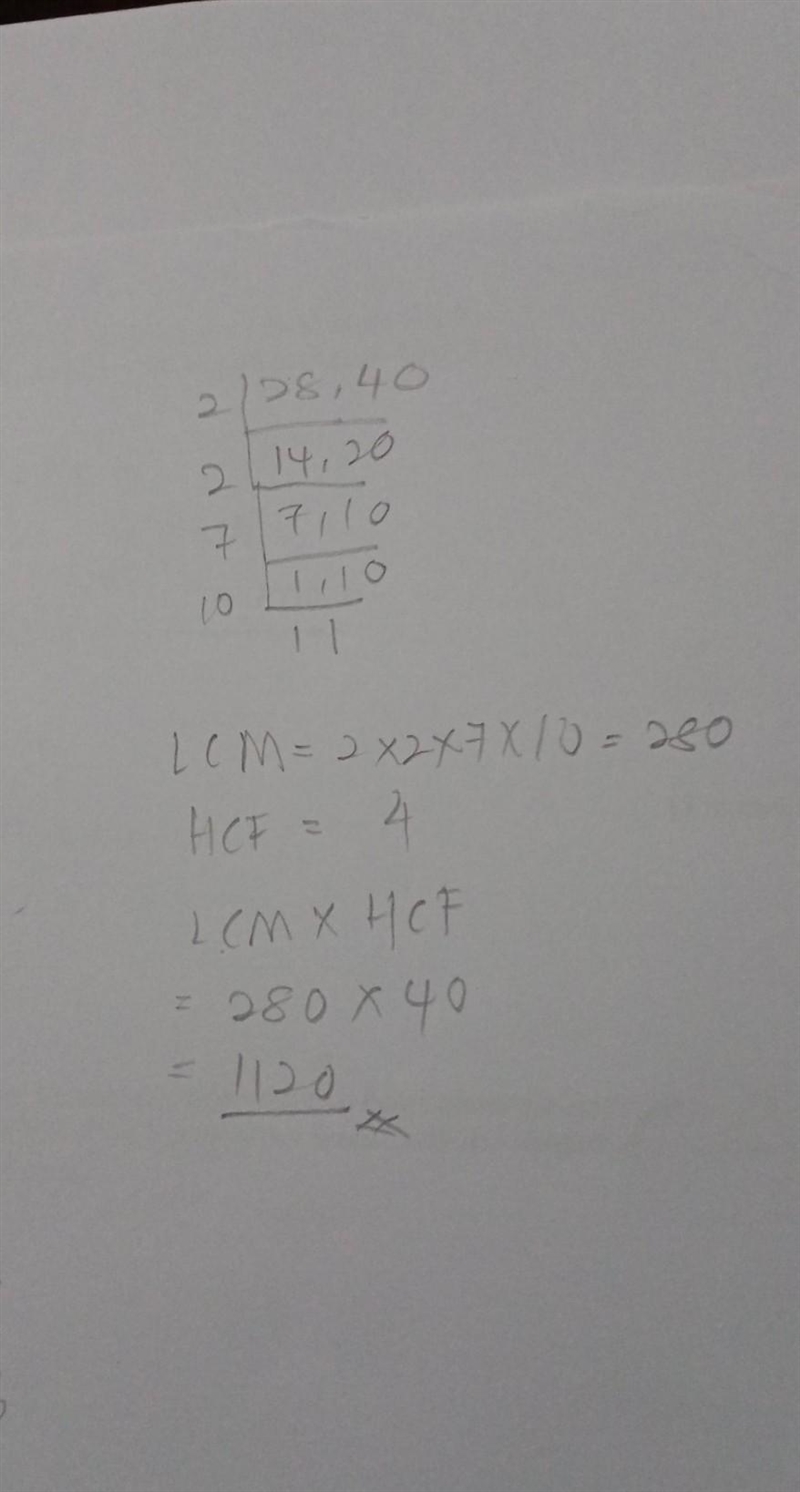 2 28, 40
2 14, 20
7 7, 10
10 1, 10
1 1
LCM = 2 × 2 × 7 × 10 = 280
HCF = 4
LCM × HCF
= 280 × 40
= 1120